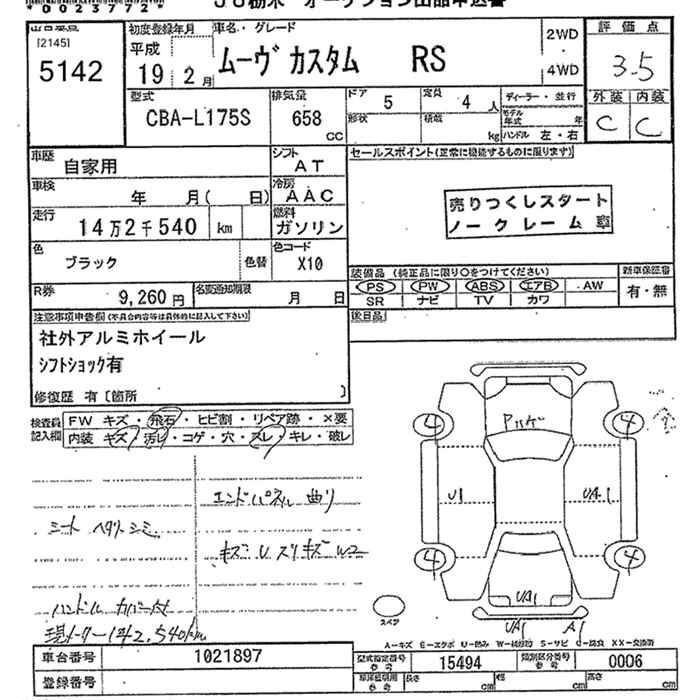 *0023772*
JU栃木 オークション出品申込書
出品番号 初度登録年月 車名・グレード 2WD 評価点
[2145] 平成 ムーヴ カスタム RS 4WD 3.5
5142 19年 2月
型式 排気量 ドア 5 定員 4人 ディーラー・並行 外装 内装
CBA-L175S 658 CC 形状 積載 kg モデル年式 年 C C
ハンドル 左・右
車歴 自家用 シフト AT セールスポイント(正常に機能するものに限ります)
車検 年 月( 日) 冷房 AAC
走行 14万2千540 km 燃料 ガソリン 売りつくしスタート
ノークレーム 車
色 ブラック 色替 色コード X10
装備品(純正品に限り○をつけてください) 新車保証書
R券 9,260円 名変通知期限 月 日 PS PW ABS エアB AW 有・無
SR ナビ TV カワ
注意事項申告欄(不具合内容等は具体的に記入して下さい) 後日品
社外アルミホイール
シフトショック有
修復歴 有〔箇所 〕
検査員記入欄 FW キズ・飛石・ヒビ割・リペア跡・×要
内装 キズ・汚レ・コゲ・穴・スレ・キレ・破レ
4 4
U1 UA1
エンドパネル 曲り
シート ヘタリ シミ
キズ U スリキズ W2
4 4
ハンドル カバー付
現メーター 142,540km
UA1
スペア
UA1 A1
A-キズ E-エクボ U-凹み W-補修跡 S-サビ C-腐食 XX-交換済
車台番号 1021897 型式指定番号 参考 15494 類別区分番号 参考 0006
登録番号 車庫証明用 参考 長さ cm 幅 cm 高さ cm